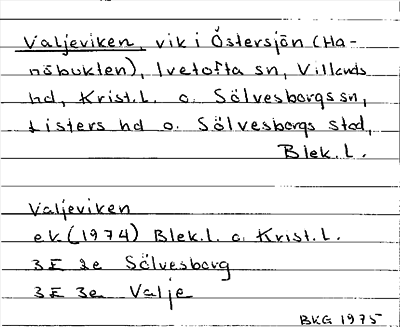 Valjeviken, vik i Östersjön (Ha-
nöbukten), Ivetofta sn, Villands
hd, Krist.l. o. Sölvesborgs sn,
Listers hd o. Sölvesborgs stad,
Blek.l.
Valjeviken
ek (1974) Blek.l. o. Krist.l.
3E 2e Sölvesborg
3E 3e Valje
BKG 1975